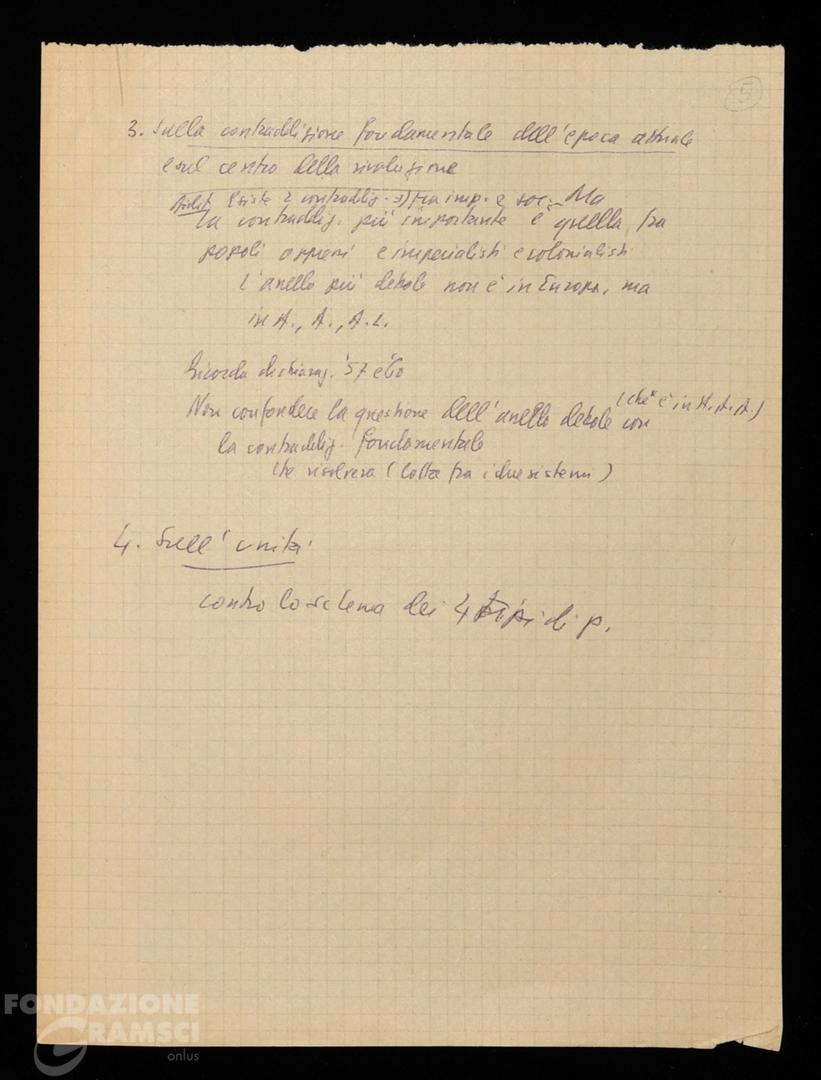 5
3. Sulla contraddizione fondamentale dell'epoca attuale
e sul centro della rivoluzione
Esiste 2 contraddiz. tra imp. e soc. Ma
la contraddiz. più importante è quella fra
popoli oppressi e imperialisti e colonialisti
L'anello più debole non è in Europa, ma
in A., A., A.L.
Ricorda dichiaraz. '57 e '60
(che è in A. A. A.)
Non confondere la questione dell'anello debole con
la contraddiz. fondamentale
che risolverà (lotta fra i due sistemi)
4. Sull'unità
contro lo schema dei 4 tipi di p.
FONDAZIONE
GRAMSCI
onlus